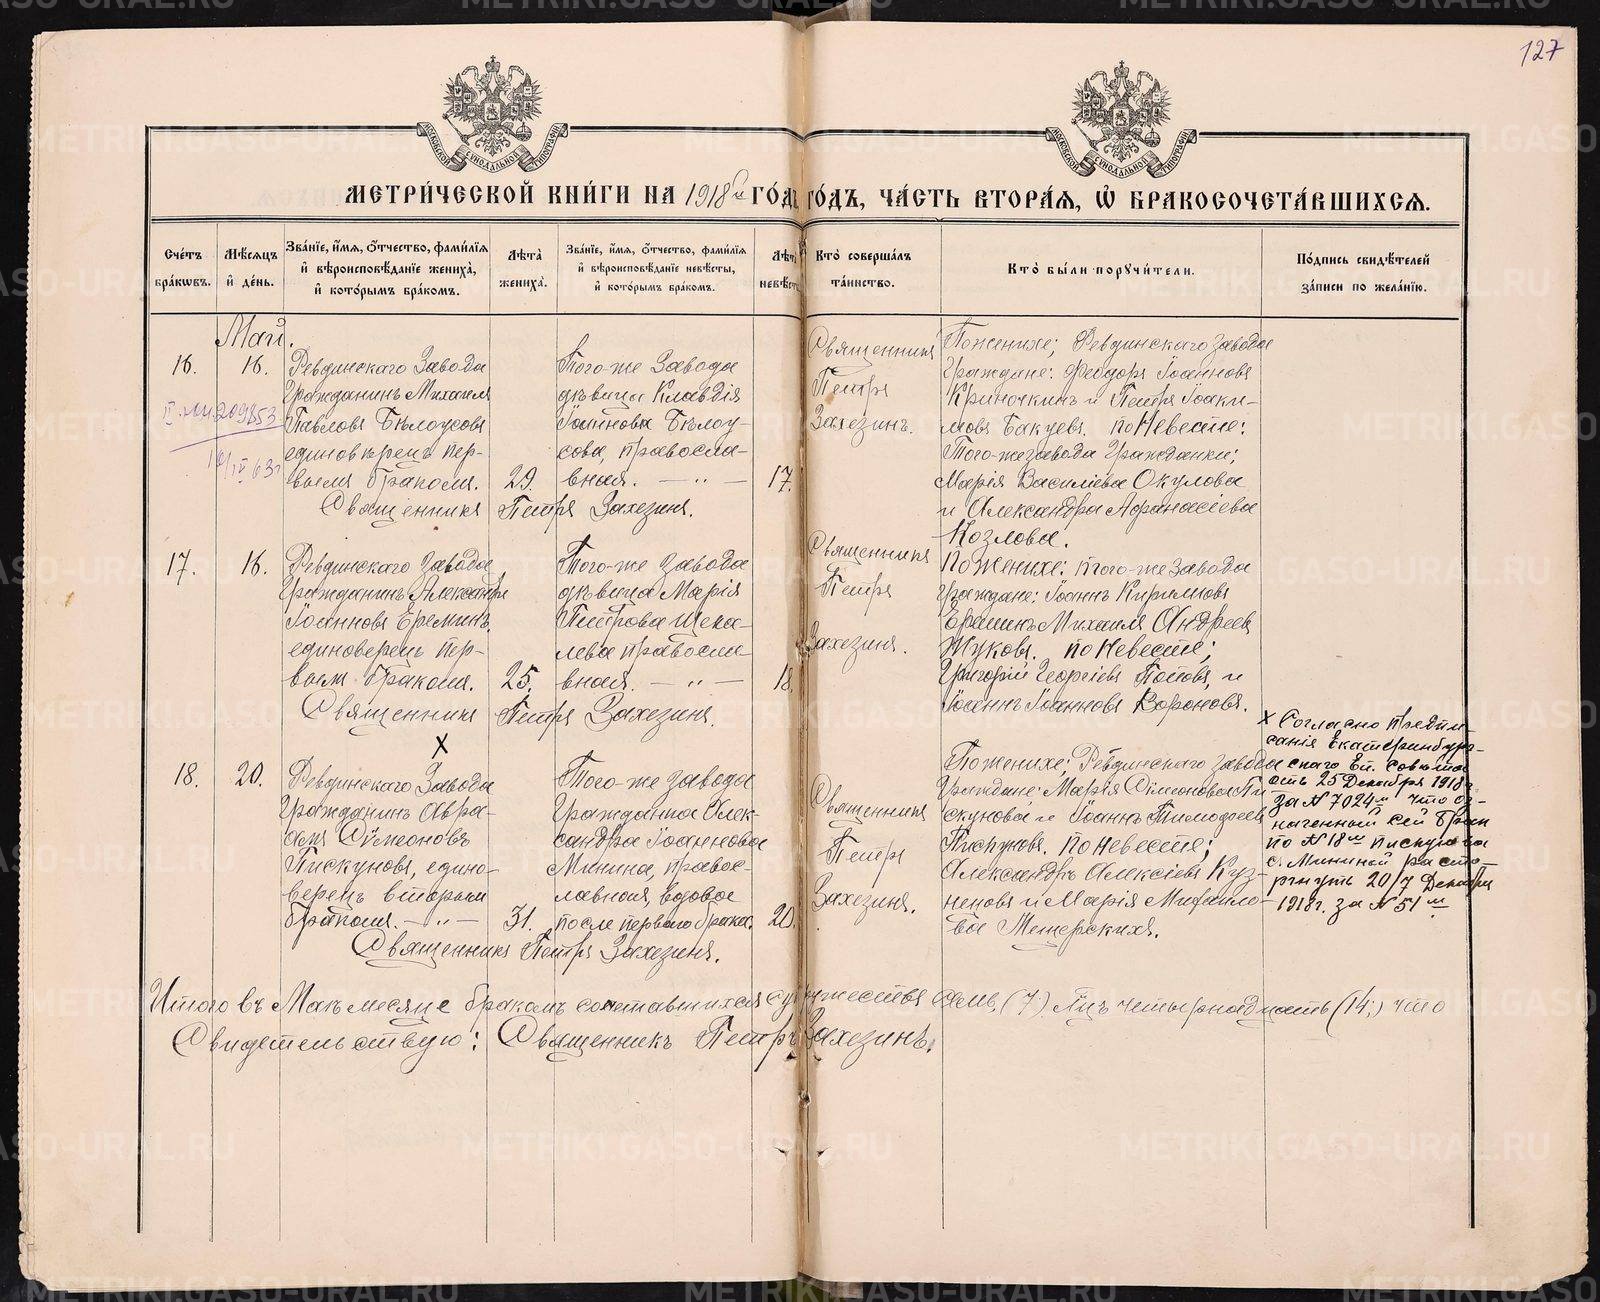 127
МЕТРИ́ЧЕСКОЙ КНИ́ГИ НА 1918й ГО́ДЪ, ЧА́СТЬ ВТОРА́Я, Ѡ БРАКОСОЧЕТА́ВШИХСЯ.
Сче́тъ бра́кѡвъ.
Мѣ́сяцъ и҆ де́нь.
Зва́нїе, и҆́мя, ѻ҆́тчество, фамі́лїя
и҆ вѣроисповѣ́данїе жениха̀,
и҆ кото́рымъ бра́комъ.
Лѣ́та жениха̀.
Зва́нїе, и҆́мя, ѻ҆́тчество, фамі́лїя
и҆ вѣроисповѣ́данїе невѣ́сты,
и҆ кото́рымъ бра́комъ.
Лѣ́та невѣ́сты
Кто̀ соверша́лъ та́инство.
Кто̀ бы́ли порꙋчи́тели.
По́дпись свидѣ́телей за́писи по жела́нїю.
Май.
16.
16.
Ревдинскаго Завода
Гражданинъ Михаилъ
Павловъ Бѣлоусовъ
единовѣрецъ пер-
вымъ бракомъ.
29.
Того-же Завода
дѣвица Клавдія
Іоаннова Бѣлоу-
сова, правосла-
вная. — „ —
17.
Священникъ Петръ Захезинъ.
209853
Священникъ
Петръ
Захезинъ.
По женихе; Ревдинскаго завода
Граждане: Феодоръ Іоанновъ
Криночкинъ и Петръ Іоаки-
мовъ Бакуевъ. по Невесте:
Того-же завода Гражданки;
Марія Василіева Окулова
и Александра Афанасіева
Козлова.
17.
16.
Ревдинскаго завода
Гражданинъ Александръ
Іоанновъ Ереминъ,
единоверецъ пер-
вым бракомъ.
25.
Того-же завода
дѣвица Марія
Петрова Щека-
лева правосла-
вная. — „ —
18.
Священникъ Петръ Захезинъ.
Священникъ
Петръ
Захезинъ.
По Женихе: того-же завода
граждане: Іоаннъ Кириловъ
Михаилъ Андреев
Жуковъ. по Невесте;
Григорій Георгіевъ Поповъ, и
Іоаннъ Іоанновъ Вороновъ.
х
18.
20.
Ревдинскаго Завода
Гражданинъ Авра-
амъ Симеоновъ
Пискуновъ, едино-
верецъ вторым
бракомъ. — „ —
31.
Того-же завода
Гражданка Алек-
сандра Іоаннова
Минина, правос-
лавная, вдовое
после перваго брака.
20.
Священникъ Петръ Захезинъ.
Священникъ
Петръ
Захезинъ.
По женихе; Ревдинскаго завода
Граждане: Марія Симеонова Пи-
скунова и Іоаннъ Тимофеевъ
Пискуновъ. По невесте;
Александръ Алексіевъ Куз-
неновъ и Марія Михаило-
ва Мещерскихъ.
х Согласно предпи-
санія Екатеринбург-
скаго Еп. совета
отъ 25 Декабря 1918г.
за № 7024м что оз-
наченный сей брак
по № 18м Пискунова
с Мининой расто-
ргнутъ 20/7 Декабря
1918г. за № 51м
Итого въ Маѣ месяце бракомъ сочетавшихся супружества семь, (7.) Лицъ четырнадцать (14;) что
Свидетельствую: Священникъ Петръ Захезинъ.